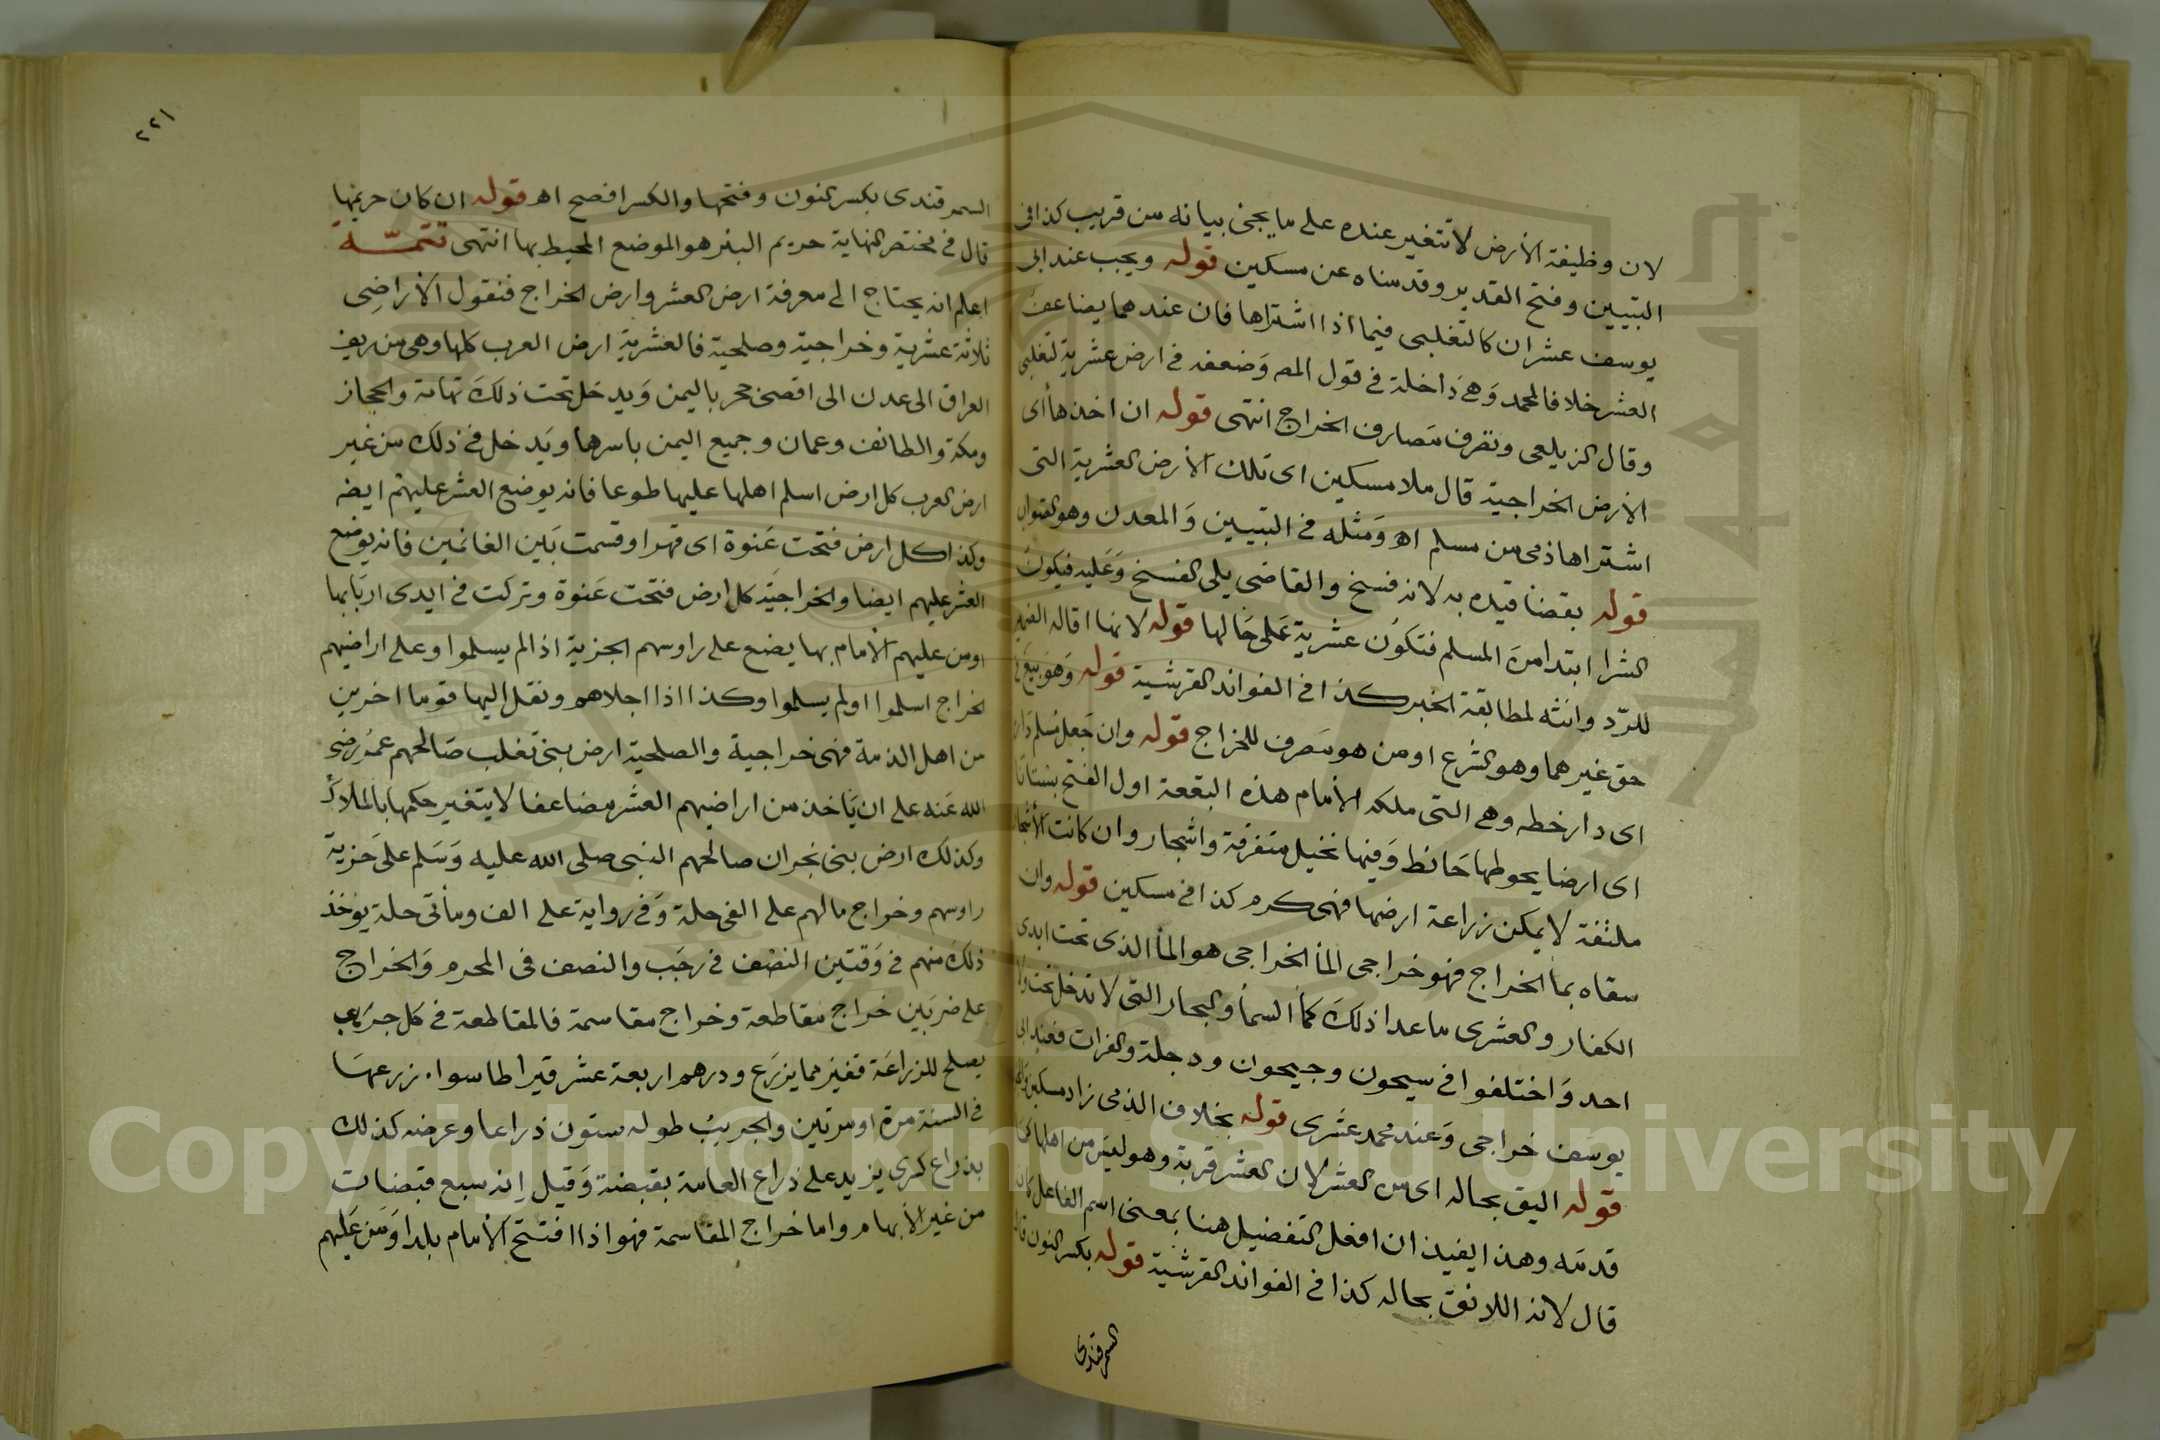 لان وظيفة الأرض لا تتغير عنده على ما يجئ بيانه من قريب كذا فى
التبيين وفتح القدير وقدمناه عن مسكين قوله ويجب عند ابى
يوسف عشران كالتغلبى فيما اذا اشتراها فان عندهما يضاعف
العشر خلافا لمحمد وهى داخلة فى قول المصـ وضعفه فى ارض عشرية لتغلبى
وقال الزيلعى وتصرف مصارف الخراج انتهى قوله ان اخذها أى
الارض الخراجية قال ملا مسكين اى تلك الأرض العشرية التى
اشتراها ذمى من مسلم اهـ ومثله فى التبيين والمعدن وهو الصواب
قوله بقضأ قيده به لانه فسخ والقاضى يلى الفسخ وعليه فيكون
الشرا ابتدا من المسلم فتكون عشرية على حالها قوله لانها اقاله الضمير
للرّد وانثه لمطابقة الخبر كذا فى الفوائد القرشية قوله وهو بيع فى
حق غيرهما وهو الشرع او من هو مصرف للخراج قوله وان جعل مسلم داره
اى دار خطه وهى التى ملكه الأمام هذه البقعة اول الفتح بستانا
اى ارضا يحوطها حائط وفيها نخيل متفرقة واشجار وان كانت الأشجار
ملتفة لا يمكن زراعة ارضها فهى كرم كذا فى مسكين قوله وان
سقاه بمأ الخراج فهو خراجى المأ الخراجى هو المأ الذى تحت ايدى
الكفار والعشرى ما عدا ذلك كمأ السمأ والبحار التى لا تدخل تحت ولاية
احد واختلفوا فى سيحون وجيحون ودجلة والفرات فعند ابى
يوسف خراجى وعند محمد عشرى قوله بخلاف الذمى زاد مسكين
قوله اليق بحاله اى من العشر لان العشر قربة وهو ليس من اهلها
قدمه وهذا يفيد ان افعل التفضيل هنا بمعنى اسم الفاعل كانه
قال لانه اللائق بحاله كذا فى الفوائد القرشية قوله بكسر النون قال
السمرقندى
٢٢١
السمرقندى بكسر النون وفتحها والكسر افصح اهـ قوله ان كان حريمها
قال فى مختصر النهاية حريم البئر هو الموضع المحيط بها انتهى تتمّة
اعلم انه يحتاج الى معرفة ارض العشر وارض الخراج فنقول الأراضى
ثلاثة عشرية وخراجية وصلحية فالعشرية ارض العرب كلها وهى من ريف
العراق الى عدن الى اقصى حجر باليمن ويدخل تحت ذلك تهامة والحجاز
ومكة والطائف وعمان وجميع اليمن باسرها ويدخل فى ذلك من غير
ارض العرب كل ارض اسلم اهلها عليها طوعا فانه يوضع العشر عليهم ايضه
وكذا كل ارض فتحت عنوة اى قهرا وقسمت بين الغانمين فانه يوضع
العشر عليهم ايضا والخراجية كل ارض فتحت عنوة وتركت فى ايدى اربابها
او من عليهم الأمام بها يضع على راوسهم الجزية اذا لم يسلموا وعلى اراضيهم
الخراج اسلموا او لم يسلموا وكذا اذا اجلاهم ونقل اليها قوما اخرين
من اهل الذمة فهى خراجية والصلحية ارض بنى تغلب صالحهم عمر رضى
الله عنه على ان يأخذ من اراضيهم العشر مضاعفا لا يتغير حكمها بالملاك
وكذلك ارض بنى نجران صالحهم النبى صلى الله عليه وسلم على جزية
راوسهم وخراج مالهم على الفى حلة وفى رواية على الف ومأتى حلة يؤخذ
ذلك منهم فى وقتين النصف فى رجب والنصف فى المحرم والخراج
على ضربين خراج مقاطعة وخراج مقاسمة فالمقاطعة فى كل جريب
يصلح للزراعة قفيز مما يزرع ودرهم اربعة عشر قيراطا سواء زرعها
فى السنة مرة او مرتين والجريب طوله ستون ذراعا وعرضه كذلك
بذراع كرى يزيد على ذراع العامة بقبضة وقيل إنه سبع قبضات
من غير الأبهام واما خراج المقاسمة فهو اذا افتتح الأمام بلدا ومن عليهم
Copyright © King Saud University